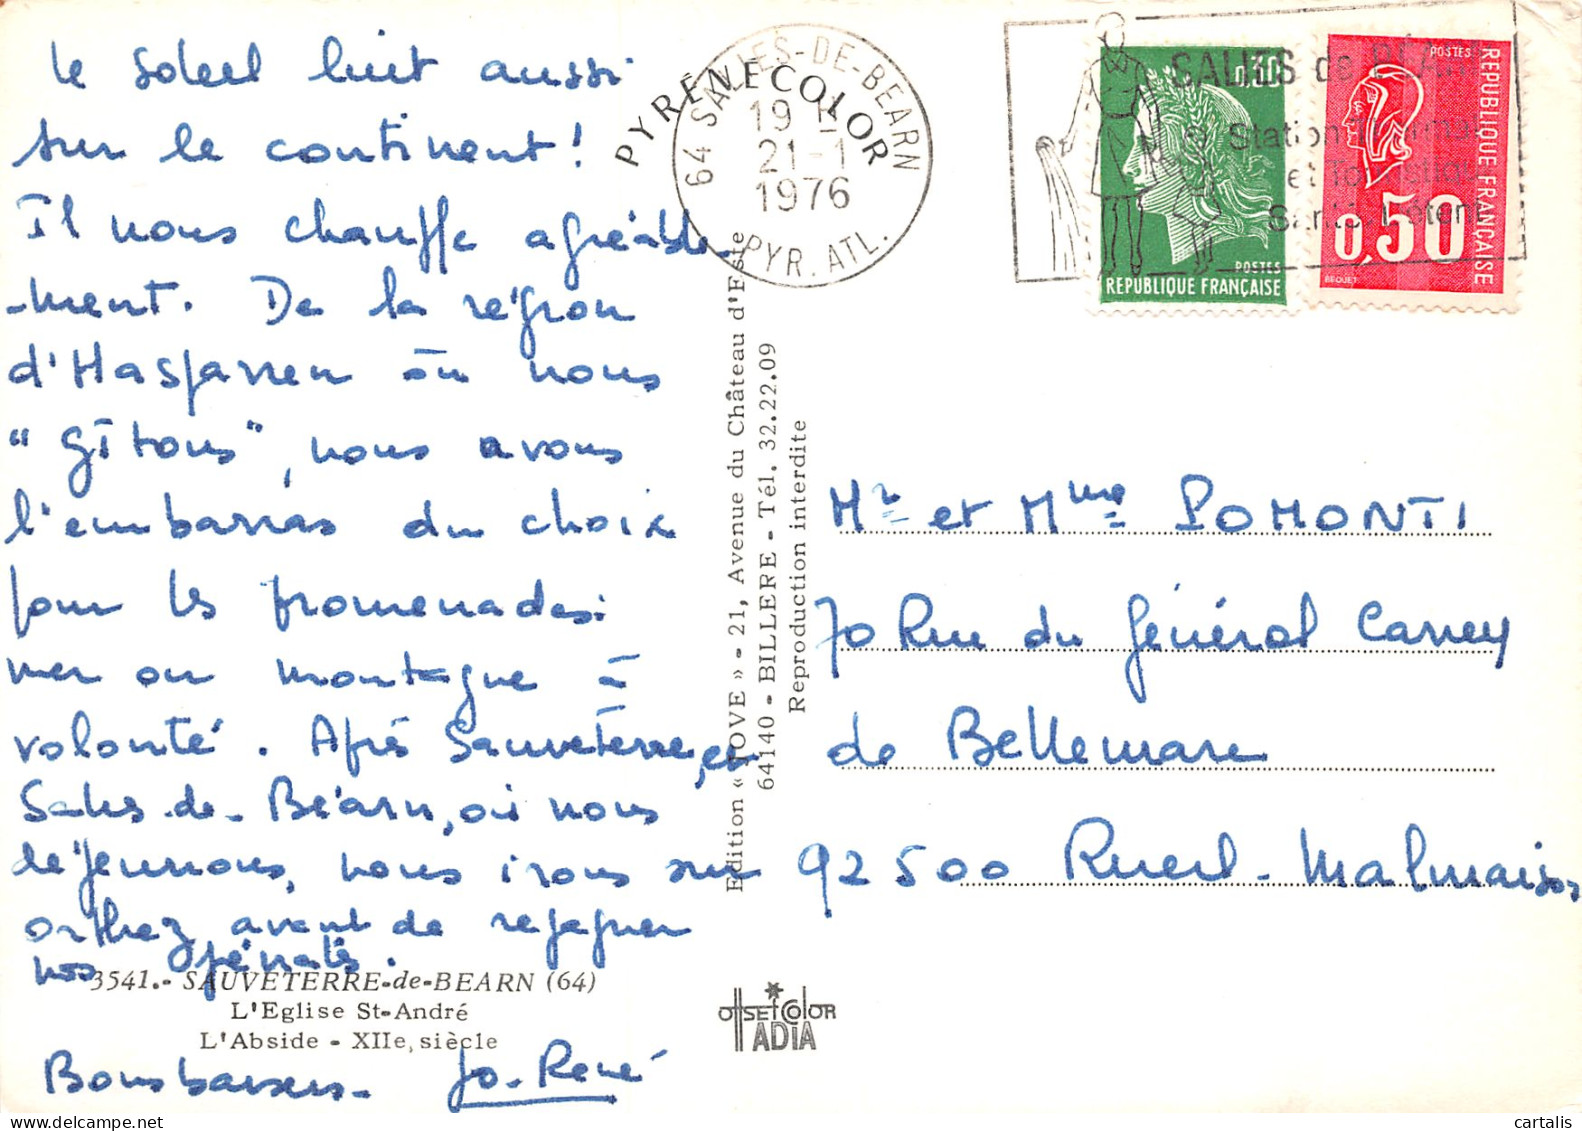 le soleil luit aussi
sur le continent !
Il nous chauffe agréable
-ment. De la région
d'Hasparren où nous
"gîtons", nous avons
l'embarras du choix
pour les promenades:
mer ou montagne à
volonté. Après Sauveterre, et
Salies-de-Béarn, où nous
déjeunons, nous irons sur
Orthez avant de regagner
nos pénates.
Bons baisers - Jo-René
3541.- SAUVETERRE-de-BEARN (64)
L'Eglise St-André
L'Abside - XIIe, siècle
PYRÉNÉCOLOR
64 SALIES-DE-BEARN
19 H
21-1
1976
PYR. ATL.
SALIES de BÉARN
Station Thermale
et Touristique
Santé Détente
0,30
POSTES
RÉPUBLIQUE FRANÇAISE
POSTES
REPUBLIQUE FRANÇAISE
0,50
BEQUET
Edition « LOVE » - 21, Avenue du Château d'Este
64140 - BILLERE - Tél. 32.22.09
Reproduction interdite
Mr et Mme POMONTI
70 Rue du Général Carrey
de Bellemare
92500 Rueil-Malmaison
OffSET COlOR
ADIA
cartalis